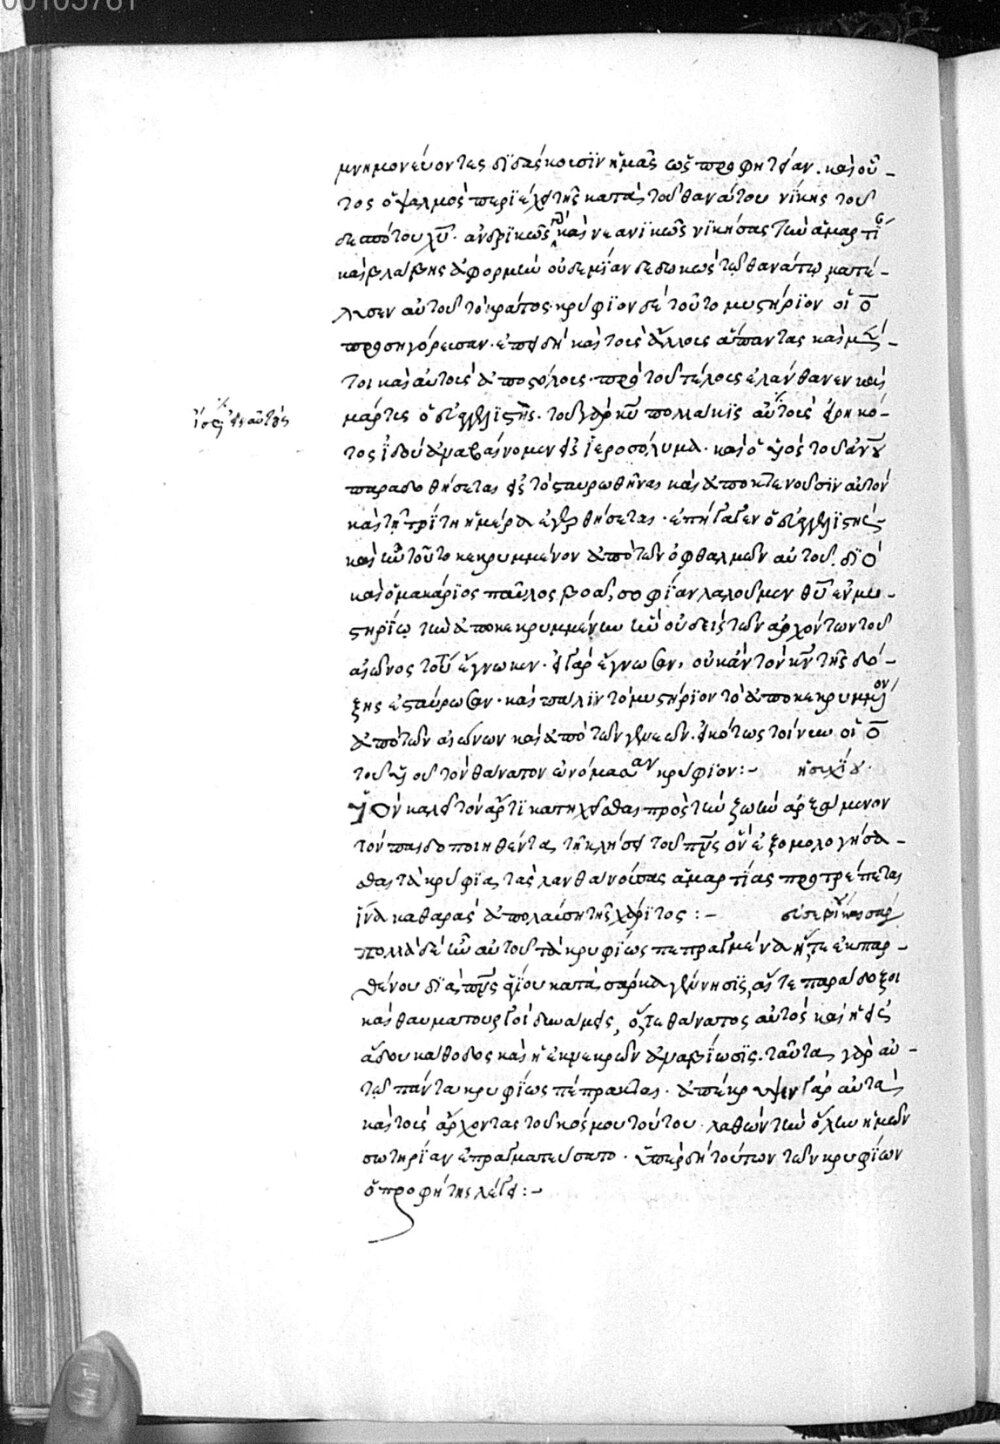 00105761
μνημονεύοντες διδάσκουσιν ἡμᾶς ὡς προφητείαν. καὶ οὗ-
τος ὁ ψαλμὸς περιέχει τῆς κατὰ τοῦ θανάτου νίκης τοῦ
δεσπότου χυ̅. ἀνδρικῶς γὰρ καὶ νεανικῶς νικήσας τὴν ἁμαρτίαν
καὶ βλάβης ἀφορμὴν οὐδεμίαν δεδωκὼς τῷ θανάτῳ, κατέ-
λυσεν αὐτοῦ τὸ κράτος. κρύφιον δὲ τοῦτο μυστήριον οἱ ο̅
προσηγόρευσαν. ἐπειδὴ καὶ τοὺς ἄλλους ἅπαντας καὶ μέν-
τοι καὶ αὐτοὺς ἀποστόλους. πρὸ τοῦ τέλους ἐλάνθανεν καὶ
μάρτυς ὁ εὐαγγελιστής. τοῦ γὰρ κυ̅ πολλάκις αὐτοῖς εἰρηκό-
τος ἰδοὺ ἀναβαίνομεν εἰς ἱεροσόλυμα. καὶ ὁ υἱὸς τοῦ ἀνου̅
παραδοθήσεται εἰς τὸ σταυρωθῆναι καὶ ἀποκτενοῦσιν αὐτὸν
καὶ τῇ τρίτῃ ἡμέρα ἐγερθήσεται. ἐπήγαγεν ὁ εὐαγγελιστής
καὶ ἦν τοῦτο κεκρυμμένον ἀπὸ τῶν ὀφθαλμῶν αὐτοῦ. διὸ
καὶ ὁ μακάριος παῦλος βοᾷ, σοφίαν λαλοῦμεν θυ̅ ἐν μυ-
στηρίῳ τὴν ἀποκεκρυμμένην ἣν οὐδεὶς τῶν ἀρχόντων τοῦ
αἰῶνος τούτου ἔγνωκεν. εἰ γὰρ ἔγνωσαν, οὐκ ἂν τὸν κν̅ τῆς δό-
ξης ἐσταύρωσαν. καὶ πάλιν τὸ μυστήριον τὸ ἀποκεκρυμμένον
ἀπὸ τῶν αἰώνων καὶ ἀπὸ τῶν γενεῶν. εἰκότως τοίνυν οἱ ο̅
τοῦ υἱοῦ τὸν θάνατον ὠνόμασαν κρύφιον:- ἡσυχίου.
Υἱὸν καλεῖ τὸν ἄρτι κατηχεῖσθαι πρὸς τὴν ζωὴν ἀρξάμενον
τὸν παιδοποιηθέντα τῇ κλήσει τοῦ πρς̅ ὃν ἐξομολογήσα-
σθαι τὰ κρύφια, τὰς λανθανούσας ἁμαρτίας προτρέπεται
ἵνα καθαρᾶς ἀπολαύσῃ τῆς χάριτος:- εὐσεβίου καισαρ
πολλὰ δὲ ἦν αὐτοῦ τὰ κρυφίως πεπραγμένα ἥ τε ἐκ παρ-
θένου διὰ πνς̅ ἁγίου κατὰ σάρκα γέννησις, αἵ τε παράδοξοι
καὶ θαυματουργοὶ δυνάμεις, ὅ τε θάνατος αὐτὸς καὶ ἡ εἰς
ἅδου κάθοδος καὶ ἡ ἐκ νεκρῶν ἀναβίωσις. ταῦτα γὰρ αὐ-
τῷ πάντα κρυφίως πέπρακται. ἀπέκρυψεν γὰρ αὐτὰ
καὶ τοὺς ἄρχοντας τοῦ κόσμου τούτου. λαθὼν τὴν ὅλην ἡμῶν
σωτηρίαν ἐπραγματεύσατο. ὑπὲρ δὴ τούτων τῶν κρυφίων
ὁ προφήτης λέγει:-